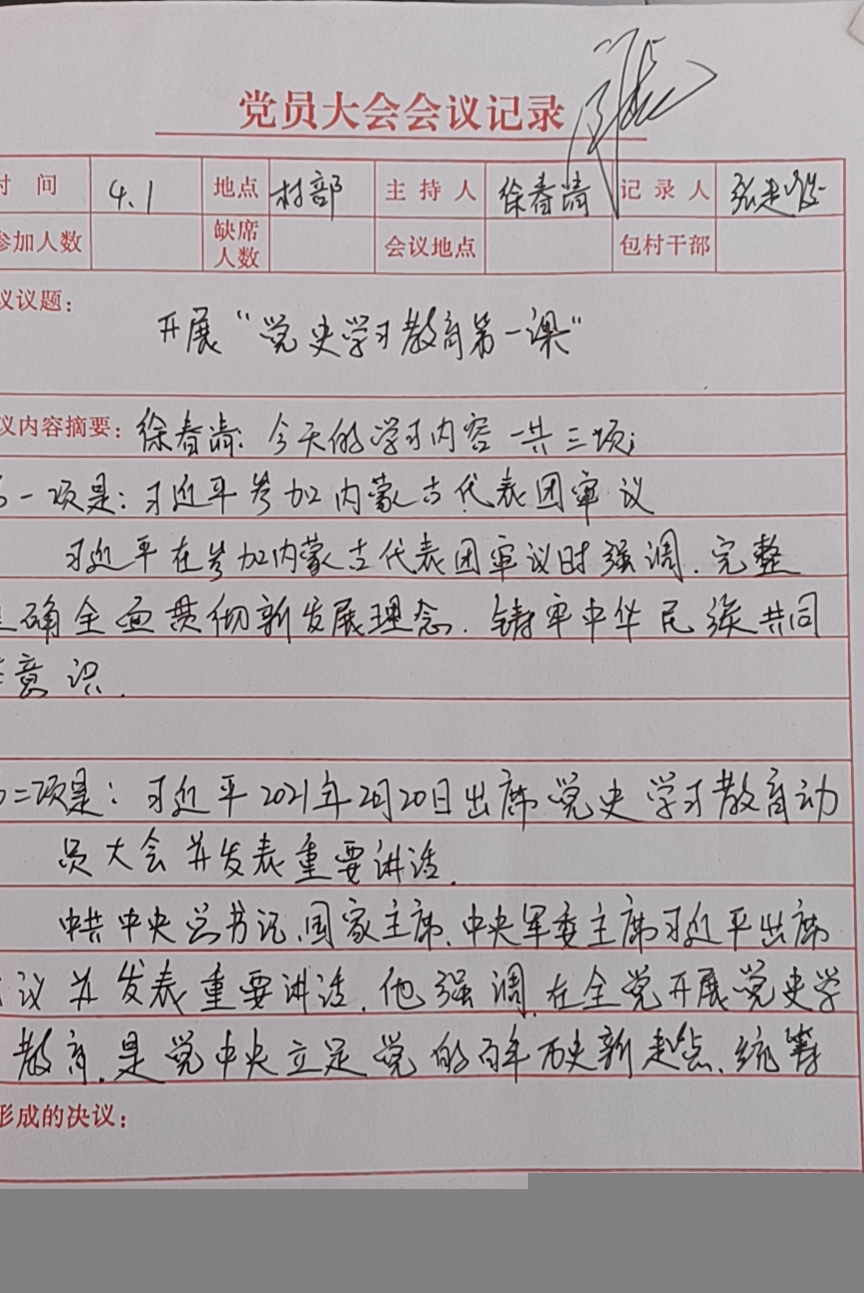 党员大会会议记录
时 间 4.1 地点 村部 主持人 徐春 记录人 张
参加人数 缺席人数 会议地点 包村干部
议议题：
开展“党史学习教育第一课”
议内容摘要：徐春 ：今天的学习内容一共三项；
一项是：习近平参加内蒙古代表团审议
习近平在参加内蒙古代表团审议时强调、完整
确全面贯彻新发展理念、铸牢中华民族共同
意识.
二项是：习近平2021年2月20日出席党史学习教育动
员大会并发表重要讲话.
中共中央总书记、国家主席、中央军委主席习近平出席
议并发表重要讲话、他强调、在全党开展党史学
教育、是党中央立足党的百年历史新起点、统筹
形成的决议：